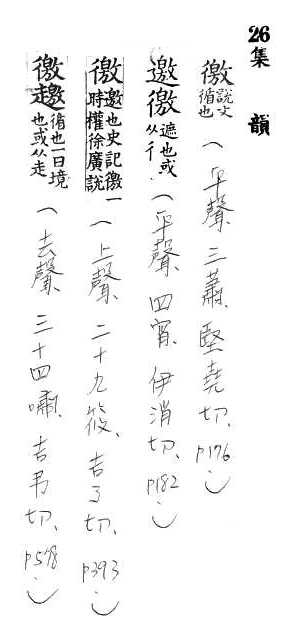 26集 韻
徼說文循也(平聲、三蕭、堅堯切、p176。)
邀徼遮也或从彳(平聲、四宵、伊消切、p182。)
徼邀也史記徼一時權徐廣說(上聲、二十九筱、吉了切、p393。)
徼趬循也一曰境也或从走(去聲、三十四嘯、吉弔切、p578。)